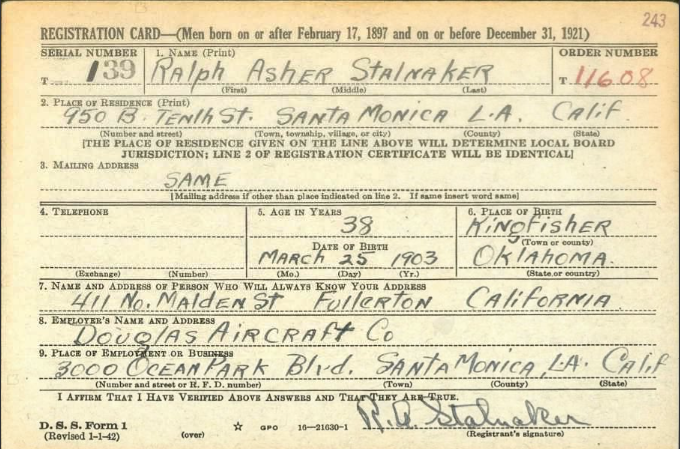 243
REGISTRATION CARD—(Men born on or after February 17, 1897 and on or before December 31, 1921)
SERIAL NUMBER
1. NAME (Print)
ORDER NUMBER
T 139
Ralph Asher Stalnaker
T 11608
(First) (Middle) (Last)
2. PLACE OF RESIDENCE (Print)
950 B. Tenth St. Santa Monica L.A. Calif.
(Number and street) (Town, township, village, or city) (County) (State)
[THE PLACE OF RESIDENCE GIVEN ON THE LINE ABOVE WILL DETERMINE LOCAL BOARD
JURISDICTION; LINE 2 OF REGISTRATION CERTIFICATE WILL BE IDENTICAL]
3. MAILING ADDRESS
SAME
[Mailing address if other than place indicated on line 2. If same insert word same]
4. TELEPHONE
5. AGE IN YEARS
6. PLACE OF BIRTH
38
Kingfisher
DATE OF BIRTH
(Town or county)
March 25 1903
Oklahoma
(Exchange) (Number) (Mo.) (Day) (Yr.) (State or country)
7. NAME AND ADDRESS OF PERSON WHO WILL ALWAYS KNOW YOUR ADDRESS
411 No. Malden St Fullerton California
8. EMPLOYER'S NAME AND ADDRESS
Douglas Aircraft Co
9. PLACE OF EMPLOYMENT OR BUSINESS
3000 Ocean Park Blvd. Santa Monica, L.A. Calif
(Number and street or R. F. D. number) (Town) (County) (State)
I AFFIRM THAT I HAVE VERIFIED ABOVE ANSWERS AND THAT THEY ARE TRUE.
R. A. Stalnaker
D. S. S. Form 1
(Revised 1-1-42) (over) ☆ GPO 16—21630-1 (Registrant's signature)